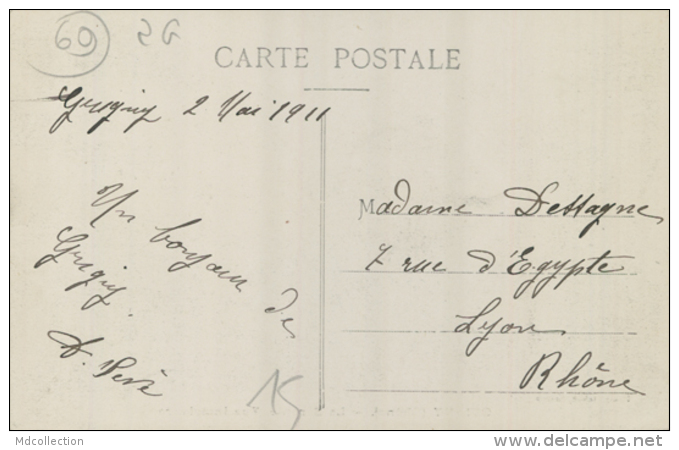 69
CARTE POSTALE
Grigny 2 Mai 1911
Un bonjour de
Grigny.
Madame Dessagne
7 rue d'Egypte
Lyon
Rhône
15
Mdcollection
www.delcampe.net